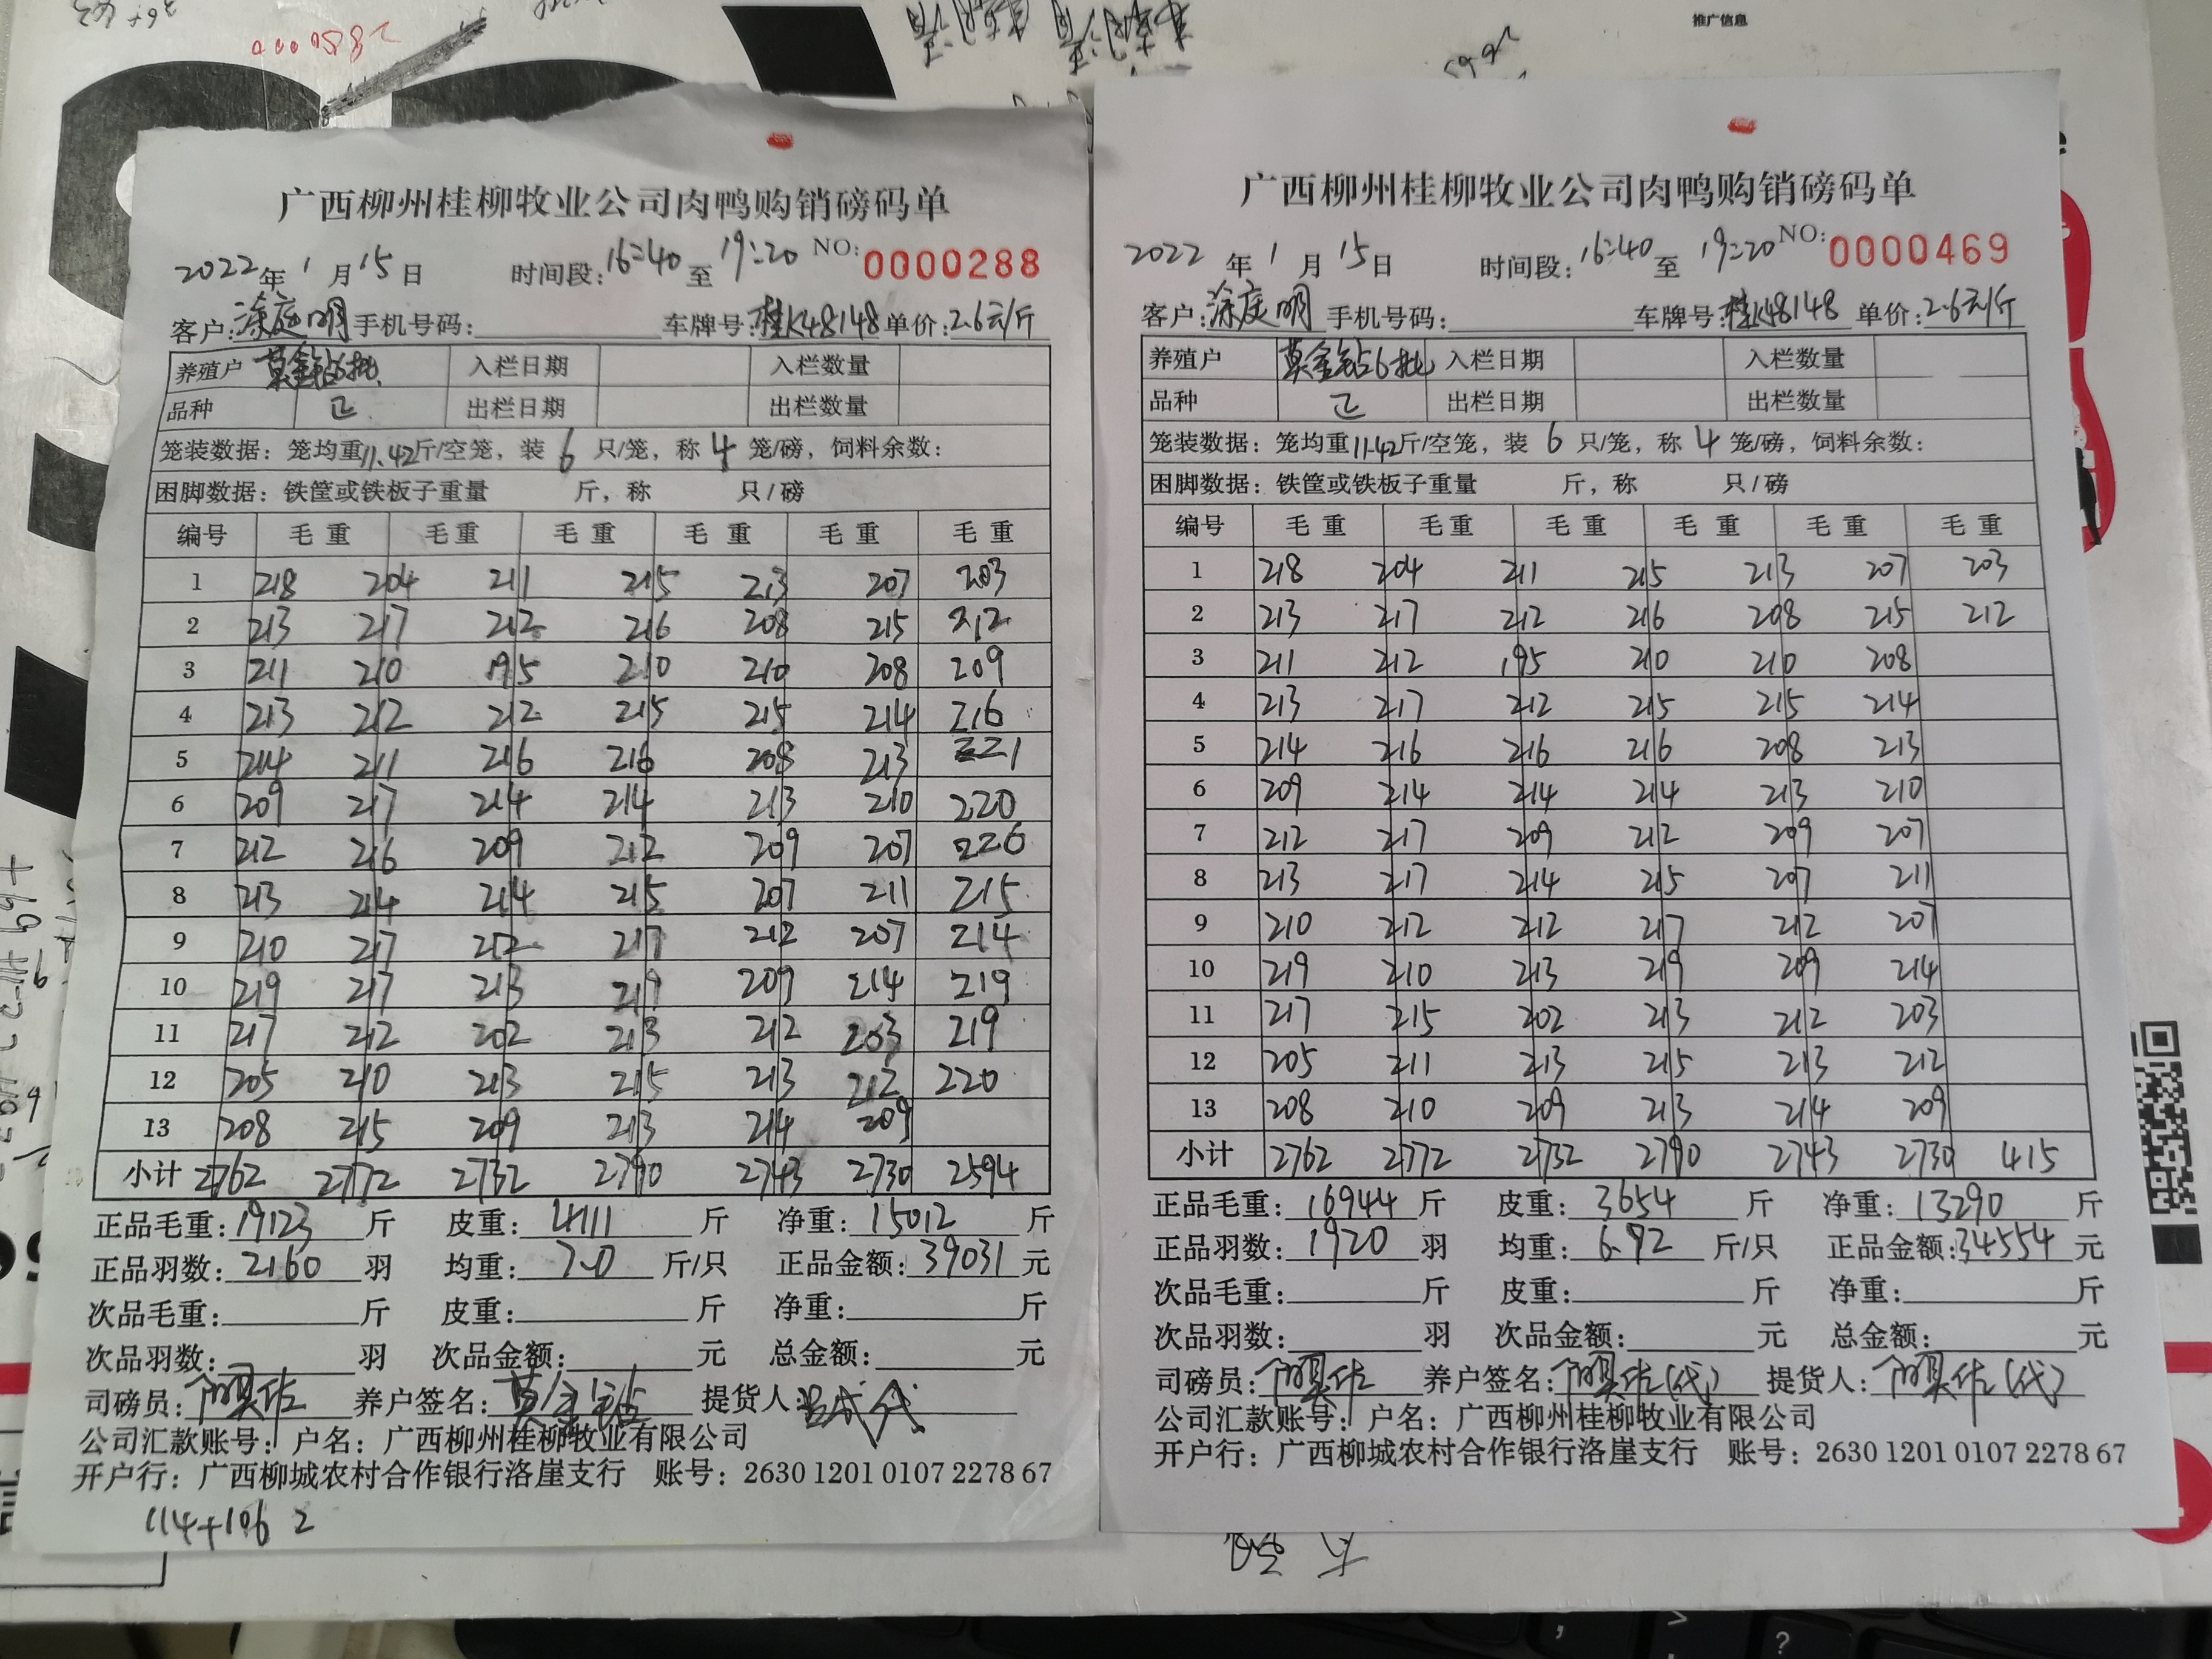 0000582
推广信息
广西柳州桂柳牧业公司肉鸭购销磅码单
2022年1月15日 时间段:16:40至19:20 NO:0000288
客户:涂庭明 手机号码: 车牌号:桂K48148 单价:2.6元/斤
养殖户 莫金钻6批 入栏日期 入栏数量
品种 正 出栏日期 出栏数量
笼装数据：笼均重11.42斤/空笼，装6只/笼，称4笼/磅，饲料余数：
困脚数据：铁筐或铁板子重量 斤，称 只/磅
编号 毛重 毛重 毛重 毛重 毛重 毛重
1 218 204 211 215 213 207 203
2 213 217 212 216 208 215 212
3 211 210 195 210 210 208 209
4 213 212 212 215 215 214 216
5 214 211 216 216 208 213 221
6 209 217 214 214 213 210 220
7 212 216 209 212 209 207 226
8 213 214 214 215 207 211 215
9 210 217 212 217 212 207 214
10 219 217 213 219 209 214 219
11 217 212 202 213 212 203 219
12 205 210 213 215 213 212 220
13 208 215 209 213 214 209
小计 2762 2772 2732 2790 2743 2730 2594
正品毛重:19123斤 皮重:4111斤 净重:15012斤
正品羽数:2160羽 均重:7.0斤/只 正品金额:39031元
次品毛重: 斤 皮重: 斤 净重: 斤
次品羽数: 羽 次品金额: 元 总金额: 元
司磅员: 养户签名:莫金钻 提货人:
公司汇款账号：户名：广西柳州桂柳牧业有限公司
开户行：广西柳城农村合作银行洛崖支行 账号：2630 1201 0107 2278 67
114+106 2
广西柳州桂柳牧业公司肉鸭购销磅码单
2022年1月15日 时间段:16:40至19:20 NO:0000469
客户:涂庭明 手机号码: 车牌号:桂K48148 单价:2.6元/斤
养殖户 莫金钻6批 入栏日期 入栏数量
品种 正 出栏日期 出栏数量
笼装数据：笼均重11.42斤/空笼，装6只/笼，称4笼/磅，饲料余数：
困脚数据：铁筐或铁板子重量 斤，称 只/磅
编号 毛重 毛重 毛重 毛重 毛重 毛重
1 218 204 211 215 213 207 203
2 213 217 212 216 208 215 212
3 211 212 195 210 210 208
4 213 217 212 215 215 214
5 214 216 216 216 208 213
6 209 214 214 214 213 210
7 212 217 209 212 209 207
8 213 217 214 215 207 211
9 210 212 212 217 212 207
10 219 210 213 219 209 214
11 217 215 202 213 212 203
12 205 211 213 215 213 212
13 208 210 209 213 214 209
小计 2762 2772 2732 2790 2743 2730 415
正品毛重:16944斤 皮重:3654斤 净重:13290斤
正品羽数:1920羽 均重:6.92斤/只 正品金额:34554元
次品毛重: 斤 皮重: 斤 净重: 斤
次品羽数: 羽 次品金额: 元 总金额: 元
司磅员: 养户签名: (代) 提货人: (代)
公司汇款账号：户名：广西柳州桂柳牧业有限公司
开户行：广西柳城农村合作银行洛崖支行 账号：2630 1201 0107 2278 67